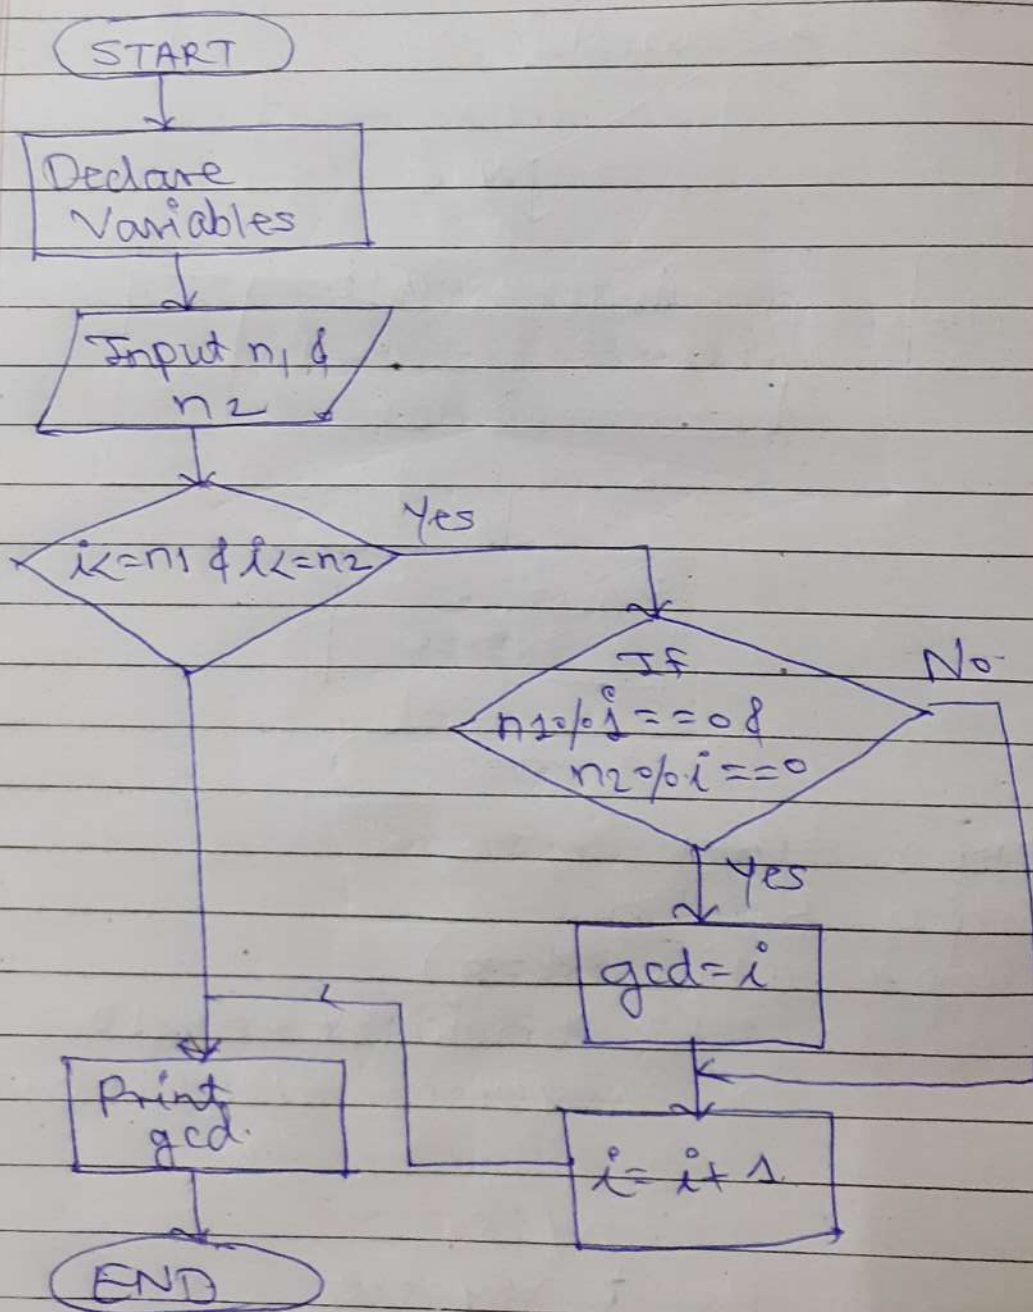 START
Declare
Variables
Input n1 &
n2
i<=n1 & i<=n2
Yes
If
n1%i==0 &
n2%i==0
No
Yes
gcd=i
i=i+1
Print
gcd.
END